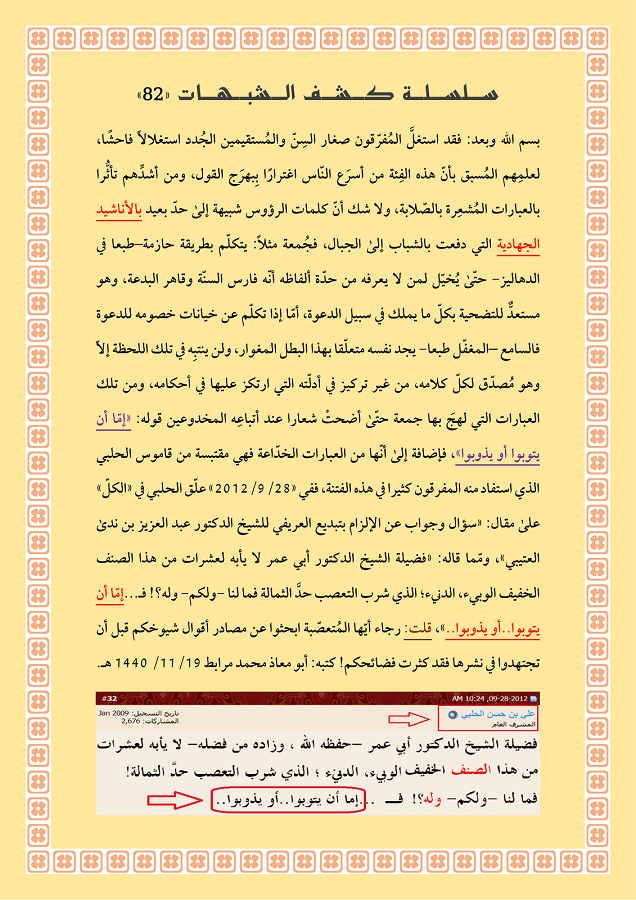 سلسلة كشف الشبهات «82»
بسم الله وبعد: فقد استغلَّ المُفرّقون صغار السِنّ والمُستقيمين الجُدد استغلالاً فاحشًا،
لعلمِهم المُسبق بأنّ هذه الفِئة من أسرَع النّاس اغترارًا بِبهرَج القول، ومن أشدِّهم تأثُّرا
بالعبارات المُشعِرة بالصّلابة، ولا شك أنّ كلمات الرؤوس شبيهة إلىٰ حدّ بعيد بالأناشيد
الجهادية التي دفعت بالشباب إلىٰ الجبال، فجُمعة مثلاً: يتكلّم بطريقة حازمة–طبعا في
الدهاليز- حتّىٰ يُخيّل لمن لا يعرفه من حدّة ألفاظه أنّه فارس السنّة وقاهر البدعة، وهو
مستعدٌّ للتضحية بكلّ ما يملك في سبيل الدعوة، أمّا إذا تكلّم عن خيانات خصومه للدعوة
فالسامع –المغفّل طبعا- يجد نفسه متعلّقا بهذا البطل المغوار، ولن ينتبِه في تلك اللحظة إلاَّ
وهو مُصدّق لكلّ كلامه، من غير تركيز في أدلّته التي ارتكز عليها في أحكامه، ومن تلك
العبارات التي لهجَ بها جمعة حتّىٰ أضحتْ شعارا عند أتباعِه المخدوعين قوله: «إمّا أن
يتوبوا أو يذوبوا»، فإضافة إلىٰ أنّها من العبارات الخدّاعة فهي مقتبسة من قاموس الحلبي
الذي استفاد منه المفرقون كثيرا في هذه الفتنة، ففي «28/ 9/ 2012» علّق الحلبي في «الكلّ»
علىٰ مقال: «سؤال وجواب عن الإلزام بتبديع العريفي للشيخ الدكتور عبد العزيز بن ندىٰ
العتيبي»، ومّما قاله: «فضيلة الشيخ الدكتور أبي عمر لا يأبه لعشرات من هذا الصنف
الخفيف الوبيء، الدنيء؛ الذي شرب التعصب حدَّ الثمالة فما لنا -ولكم- وله؟! فـ...إمّا أن
يتوبوا..أو يذوبوا..»، قلت: رجاء أيّها المُتعصّبة ابحثوا عن مصادر أقوال شيوخكم قبل أن
تجتهدوا في نشرها فقد كثرت فضائحكم! كتبه: أبو معاذ محمد مرابط 19/ 11/ 1440 هـ.
09-28-2012, 10:24 AM #32
علي بن حسن الحلبي تاريخ التسجيل: Jan 2009
المشرف العام المشاركات: 2,676
فضيلة الشيخ الدكتور أبي عمر –حفظه الله ، وزاده من فضله- لا يأبه لعشرات
من هذا الصنف الخفيف الوبيء، الدنيء ؛ الذي شرب التعصب حدَّ الثمالة!
فما لنا –ولكم- وله؟! فـ ...إما أن يتوبوا..أو يذوبوا..